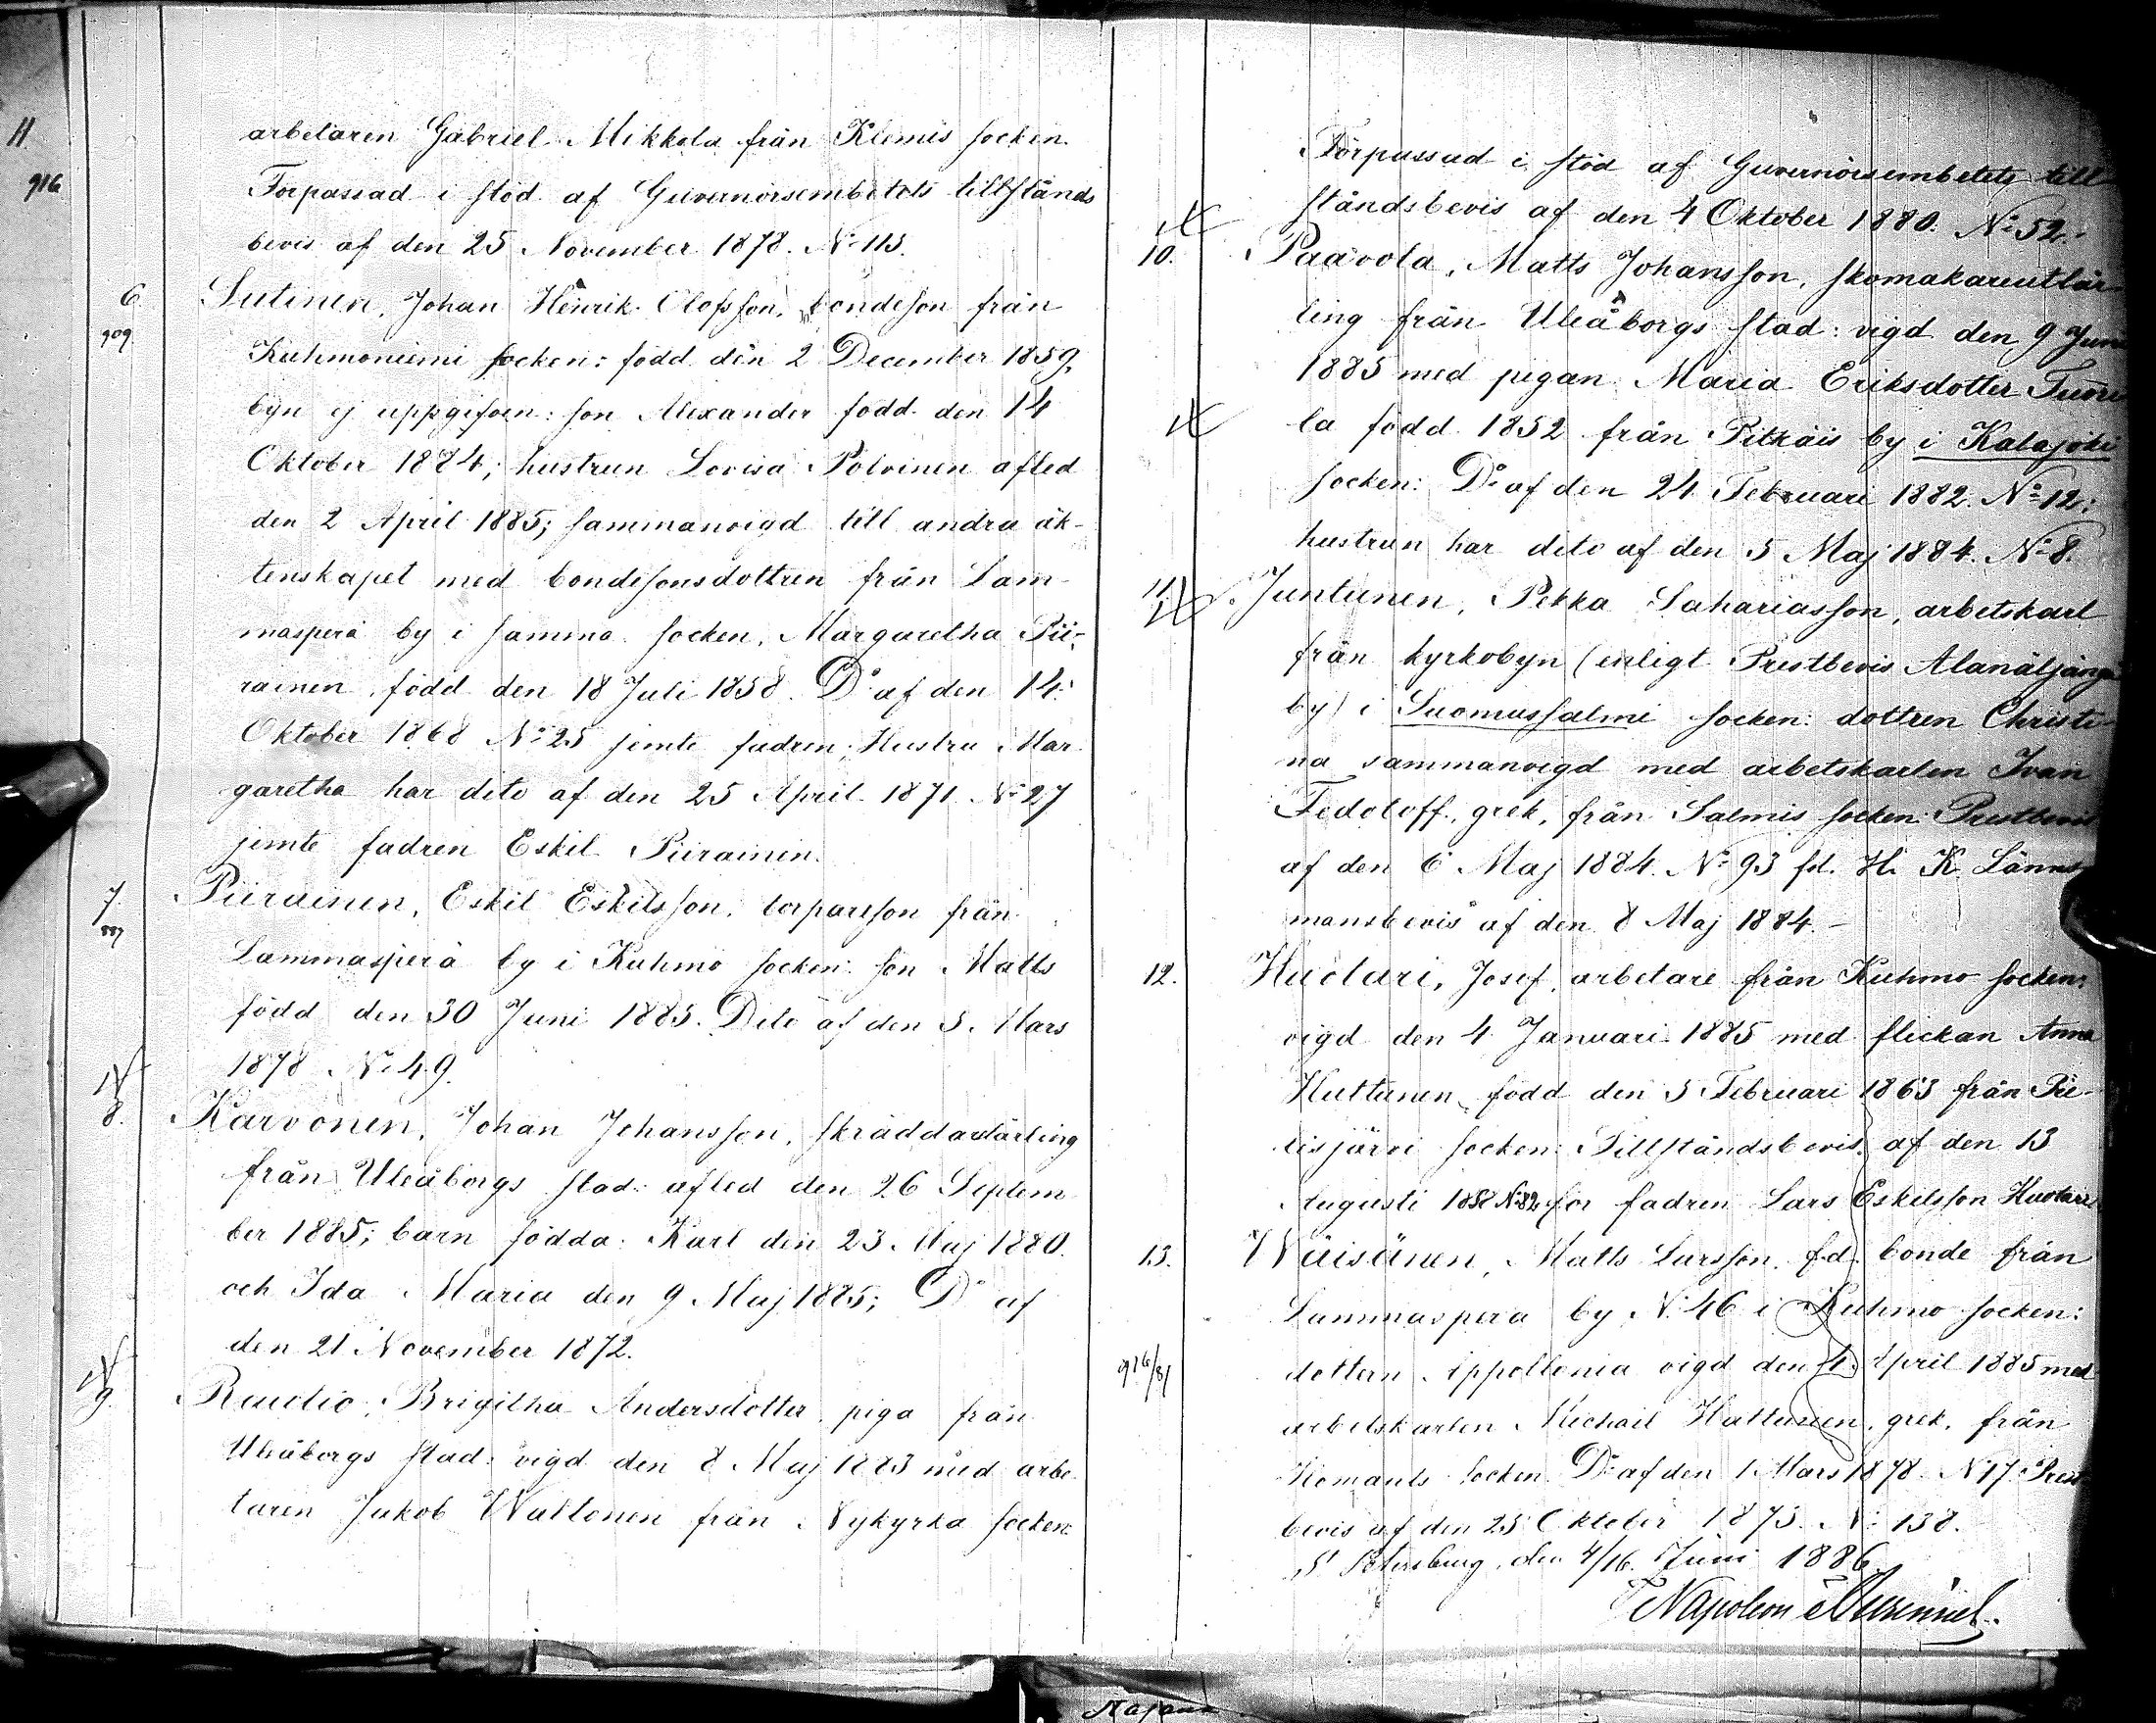 11
916
arbetaren Gabriel Mikkola från Klemis socken.
Förpassad i stöd af Guvernörsembetets tillstånds
bevis af den 25 November 1878. No 115.
6
909
Sutinen, Johan Henrik Olofsson, bondeson från
Kuhmoniemi socken: född den 2 December 1859,
byn ej uppgifven: son Alexander född den 14
Oktober 1884; hustrun Lovisa Polvinen afled
den 2 April 1885; sammanvigd till andra äk-
tenskapet med bondesonsdottren från Lam-
masperä by i samma socken, Margaretha Pii-
rainen, född den 18 Juli 1858. Do af den 14
Oktober 1868 No 25 jemte fadren; Hustru Mar
garetha har dito af den 25 April 1871 No 27
jemte fadren Eskil Piirainen.
7
887
Piirainen, Eskil Eskilsson, torpareson från
Lammasperä by i Kuhmo socken: son Matts
född den 30 Juni 1885. Dito af den 5 Mars
1878 No 49.
8.
Karvonen, Johan Johansson, skräddarlärling
från Uleåborgs stad: afled den 26 Septem
ber 1885; barn födda: Karl den 23 Maj 1880.
och Ida Maria den 9 Maj 1885; Do af
den 21 November 1872.
9.
Rautio, Brigitha Andersdotter, piga från
Uleåborgs stad: vigd den 8 Maj 1883 med arbe
taren Jakob Waltonen från Nykyrka socken:
Förpassad i stöd af Guvernörsembetets till
ståndsbevis af den 4 Oktober 1880. No 52.
10.
Paavola, Matts Johansson, skomakareutlär-
ling från Uleåborgs stad: vigd den 9 Juni
1885 med pigan Maria Eriksdotter
la född 1852 från Pitkäis by i Kalajoki
socken: Do af den 24 Februari 1882. No 12;
hustrun har dito af den 5 Maj 1884. No 8.
11.
Juntunen, Pekka Sahariasson, arbetskarl
från kyrkobyn (enligt Prestbevis Alanäljängä
by) i Suomussalmi socken: dottren Christi-
na sammanvigd med arbetskarlen Ivan
Fedotoff, grek, från Salmis socken: Prestbevis
af den 6 Maj 1884. No 93 fr. H. K. Länns
mansbevis af den 8 Maj 1884.-
12.
Huotari, Josef, arbetare från Kuhmo socken:
vigd den 4 Januari 1885 med flickan Anna
Huttunen, född den 5 Februari 1863 från Pie-
lisjärvi socken: Tillståndsbevis af den 13
Augusti 1858 No 82 för fadren Lars Eskilsson Huotari
13.
Wäisänen, Matts Larsson, f.d. bonde från
Lammasperä by No 46 i Kuhmo socken:
916/81
dottern Appollonia vigd den 4 April 1885 med
arbetskarlen Michail Hattunen, grek, från
Ilomants socken. Do af den 1 Mars 1878. N 17. Prest
bevis af den 25 Oktober 1875. No 138.
St Petersburg, den 4/16 Juni 1886
Napoleon